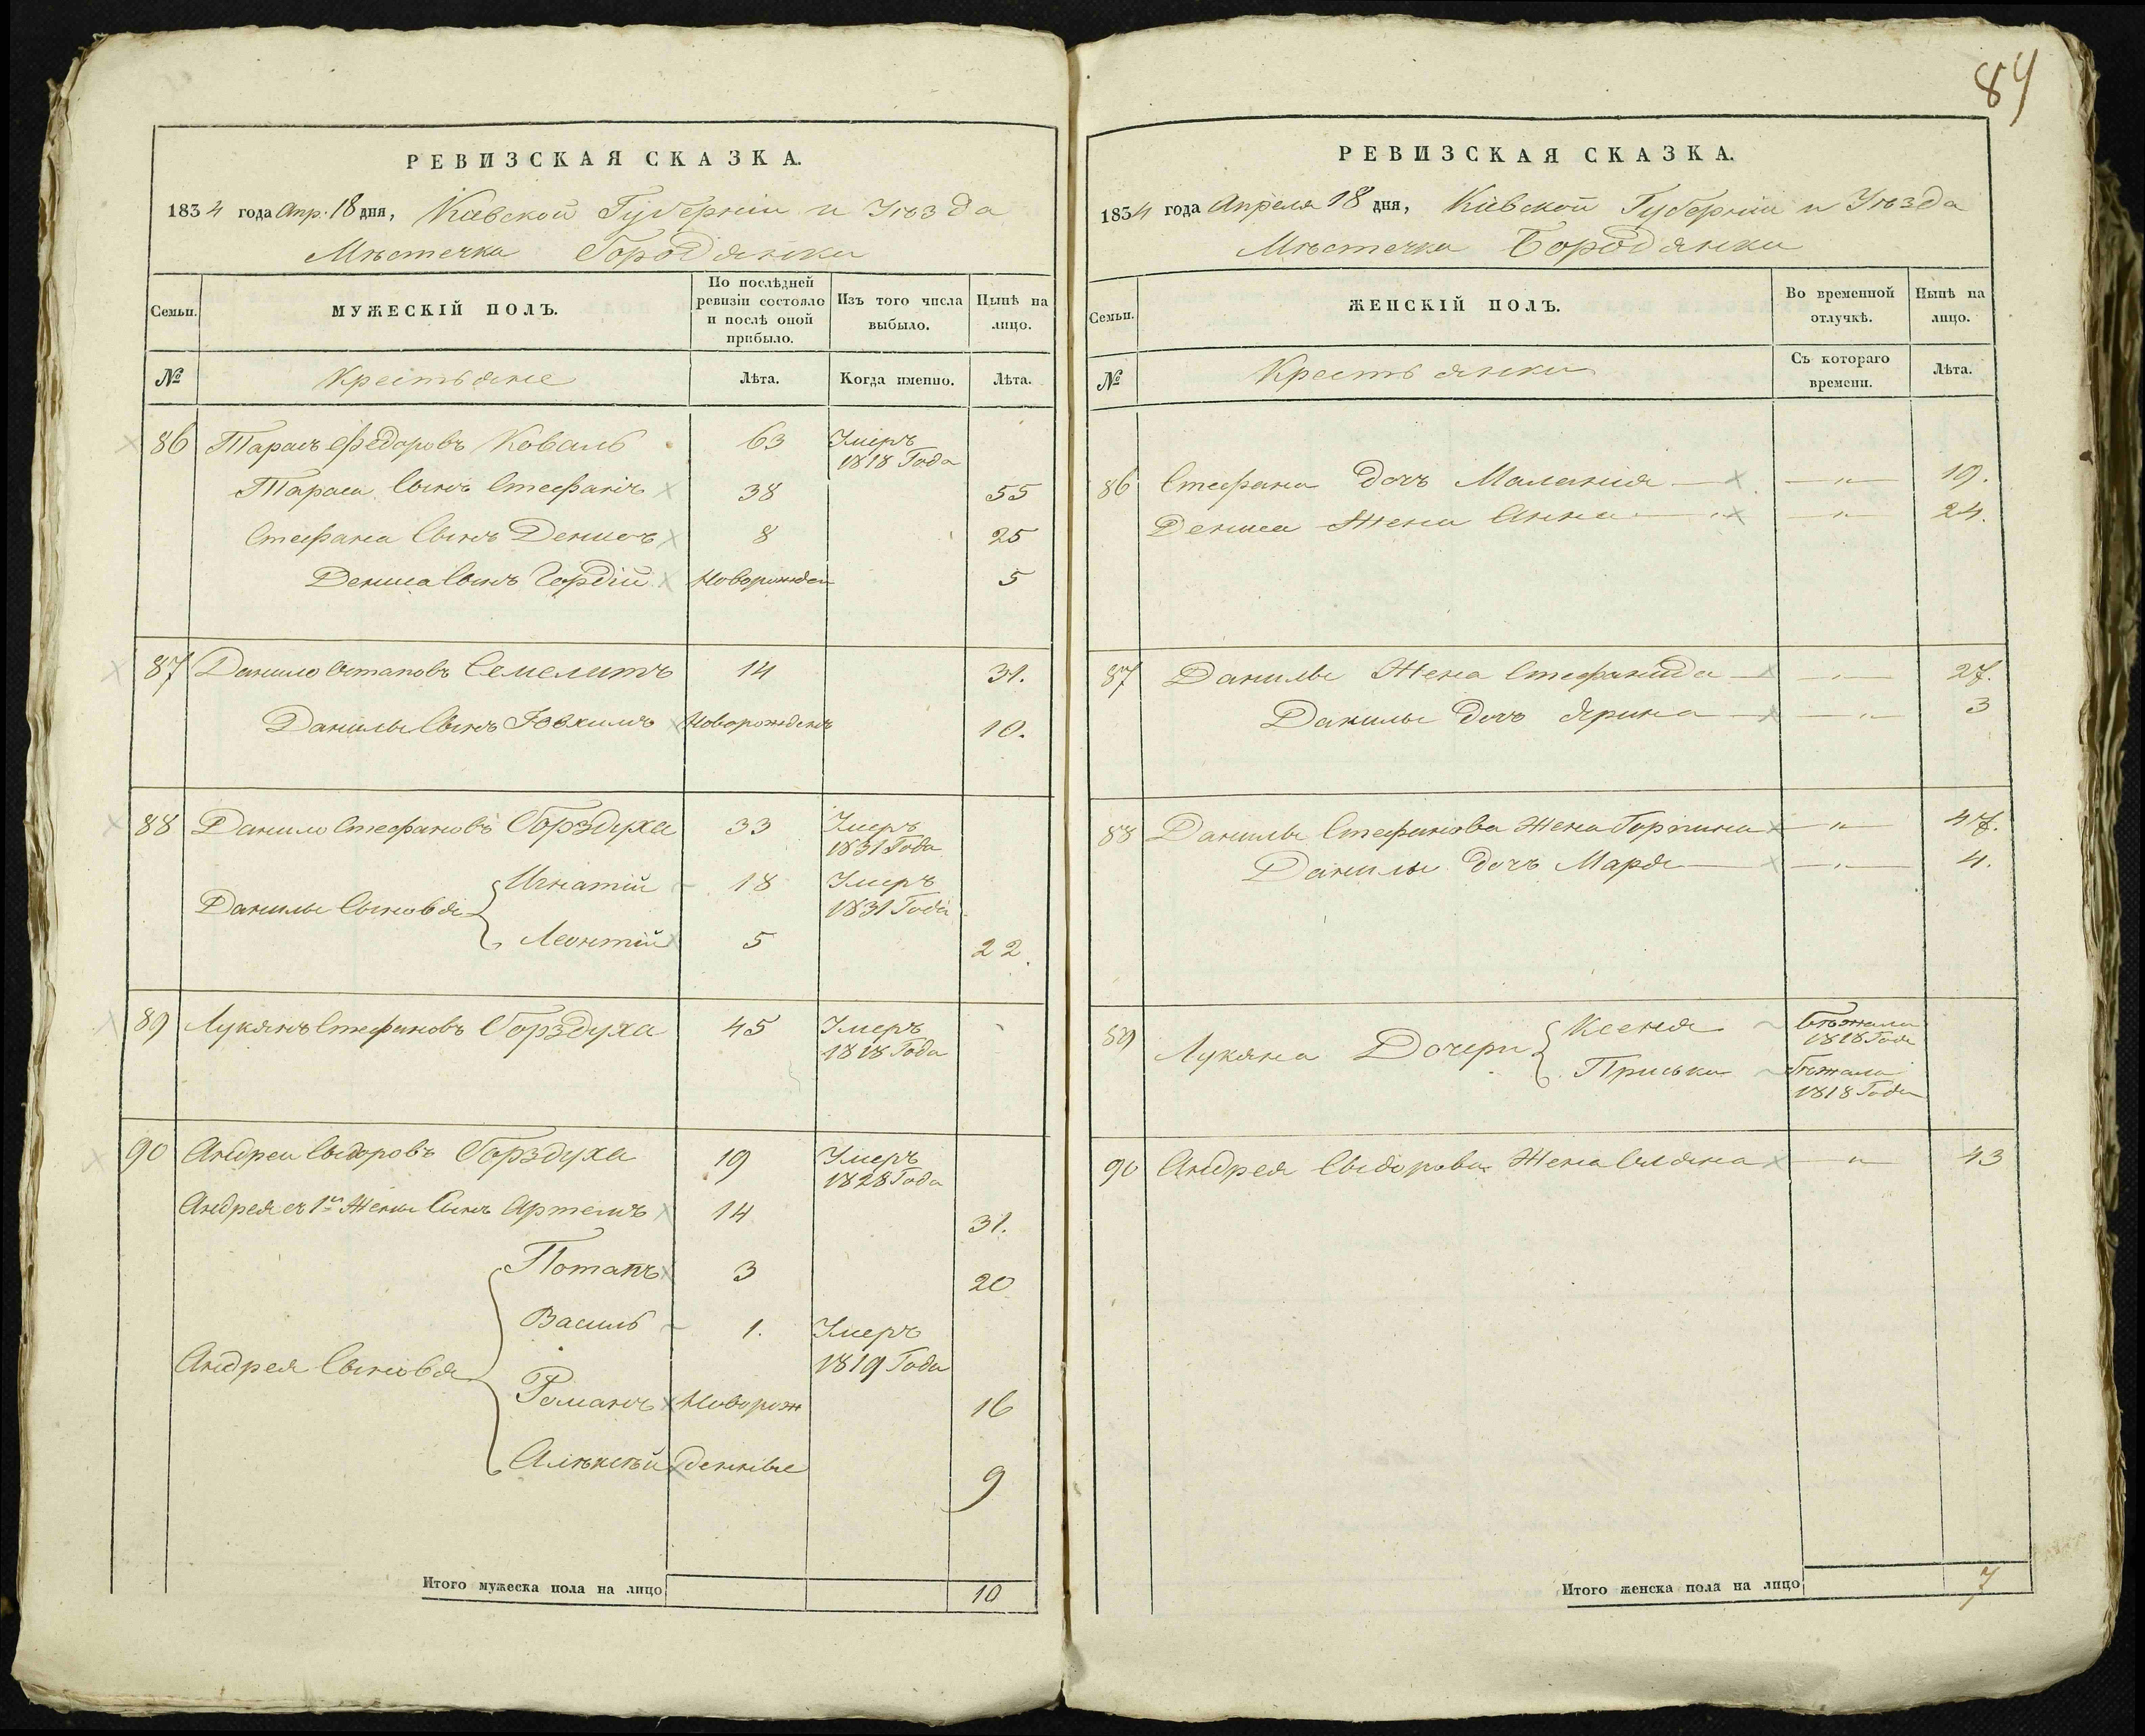 84
РЕВИЗСКАЯ СКАЗКА.
1834 года Апр. 18 дня, Кіевской Губерніи и Уѣзда
Мѣстечка Бородянки
Семьи.
МУЖЕСКІЙ ПОЛЪ.
По послѣдней ревизіи состояло и послѣ оной прибыло.
Изъ того числа выбыло.
Нынѣ на лицо.
№ Крестьяне Лѣта. Когда именно. Лѣта.
86 Тарасъ Федоровъ Коваль 63 Умеръ 1818 Года
Тараса Сынъ Стефанъ 38 55
Стефана Сынъ Денисъ 8 25
Дениса Сынъ Гордій Новорожден 5
87 Данило Остаповъ Семелитъ 14 31.
Данилы Сынъ Іовхимъ Новорожденъ 10.
88 Данило Стефановъ Борздуха 33 Умеръ 1831 Года
Данилы Сыновья
Игнатій 18 Умеръ 1831 Года
Леонтій 5 22.
89 Лукянъ Стефановъ Борздуха 45 Умеръ 1818 Года
90 Андрей Сыдоровъ Борздуха 19 Умеръ 1828 Года
Андрея съ 1й Жены Сынъ Артемъ 14 31.
Андрея Сыновья
Потапъ 3 20
Василь 1. Умеръ 1819 Года
Романъ Новорож 16
Алѣксѣй денные 9
Итого мужеска пола на лицо 10
РЕВИЗСКАЯ СКАЗКА.
1834 года Апреля 18 дня, Кіевской Губерніи и Уѣзда
Мѣстечка Бородянки
Семьи.
ЖЕНСКІЙ ПОЛЪ.
Во временной отлучкѣ.
Нынѣ на лицо.
№ Крестьянки Съ котораго времени. Лѣта.
86 Стефана дочь Маланія — " — 19.
Дениса Жена Анна — " — 24.
87 Данилы Жена Стефанида — " — 27.
Данилы дочь Ярина — " — 3
88 Данилы Стефанова Жена Горпина — " — 47.
Данилы дочь Марья — " — 4.
89 Лукяна Дочери
Ксенія Бѣжала 1818 Года
Приська Бѣжала 1818 Года
90 Андрея Сыдорова Жена Уляна — " — 43
Итого женска пола на лицо 7